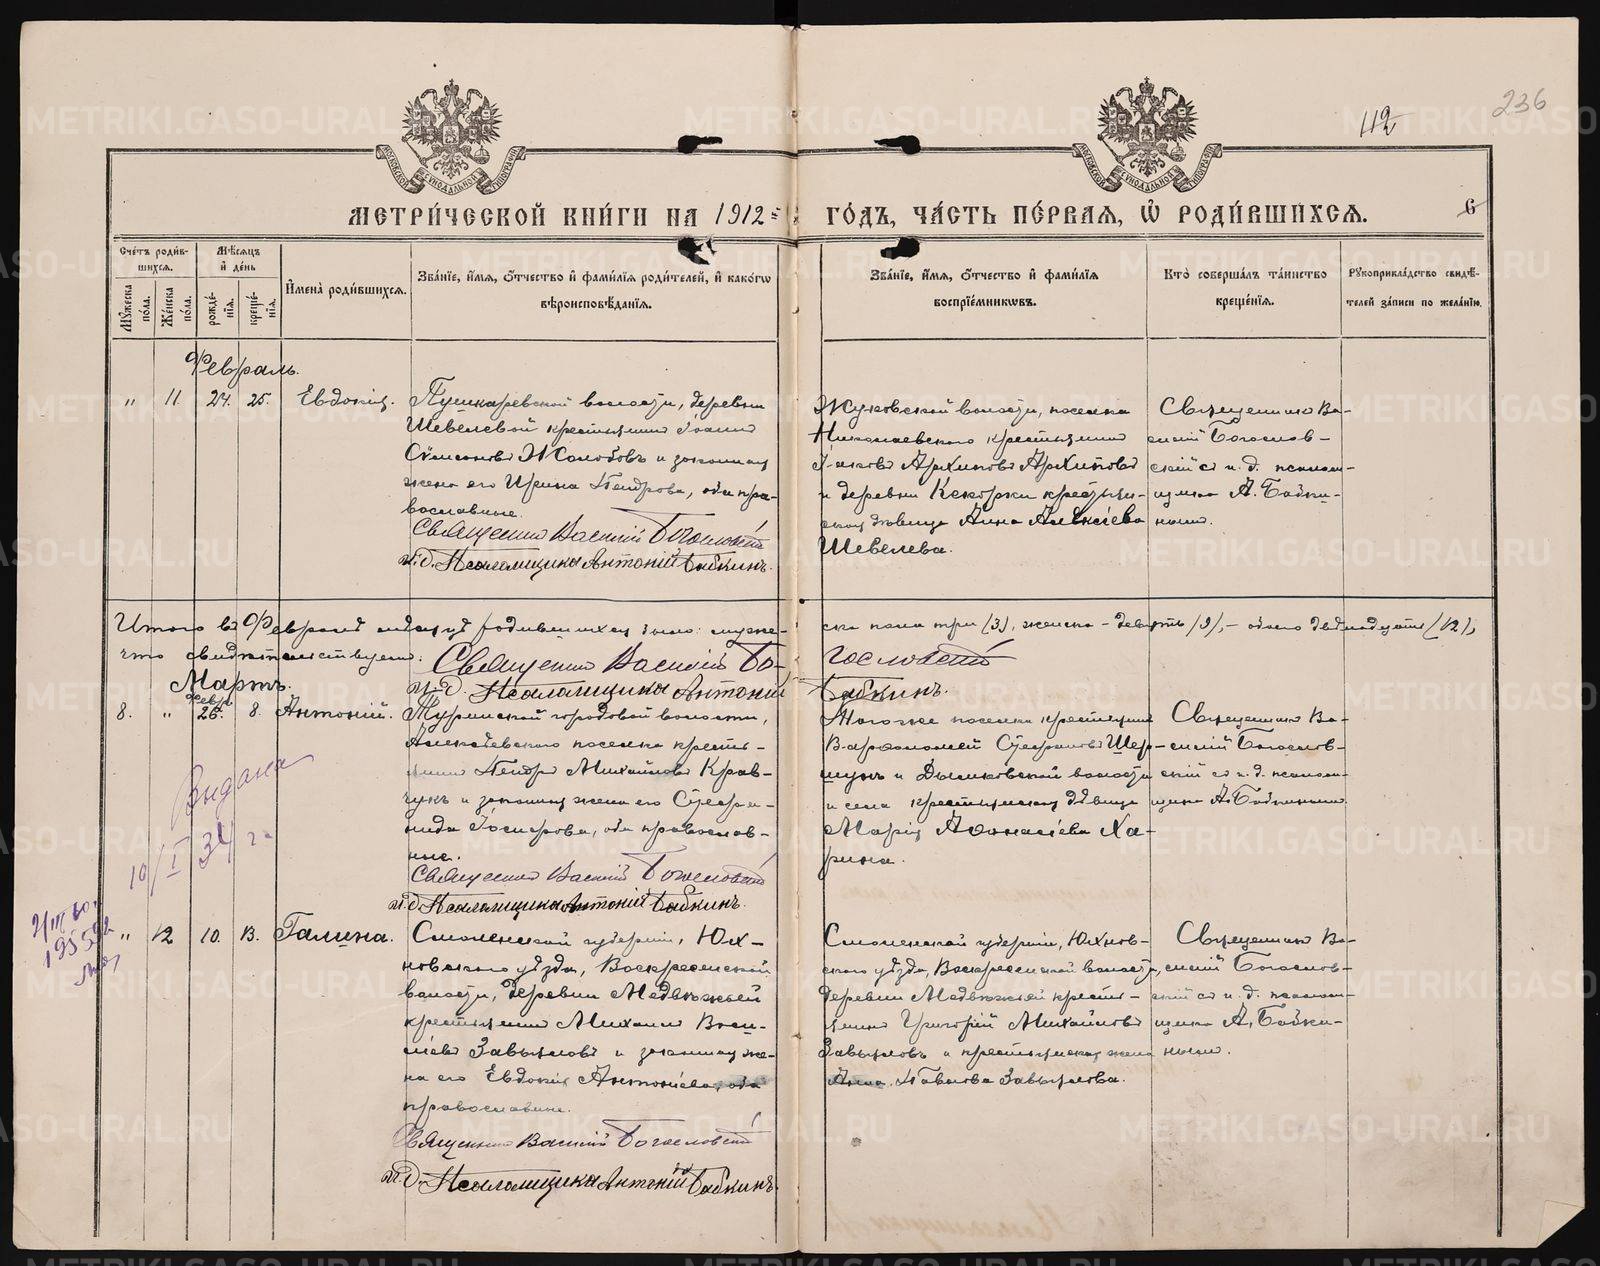 236
112
МОСКОВСКОЙ СѴНОДАЛЬНОЙ ТИПОГРАФІИ
МОСКОВСКОЙ СѴНОДАЛЬНОЙ ТИПОГРАФІИ
МЕТРИ́ЧЕСКОЙ КНИ́ГИ НА 1912 ГО́ДЪ, ЧА́СТЬ ПЕ́РВАЯ, Ѽ РОДИ́ВШИХСЯ.
6
Сче́тъ роди́в-
шихся.
Мѣ́сяцъ
и҆ де́нь
Мꙋ́жеска
по́ла.
Же́нска
по́ла.
рожде́-
нїя.
креще́-
нїя.
И҆мена̀ роди́вшихся.
Зва́нїе, и҆́мя, ѻ҆́тчество и҆ фами́лїя роди́телей, и҆ како́гѡ
вѣроисповѣ́данїя.
Зва́нїе, и҆́мя, ѻ҆́тчество и҆ фами́лїя
воспрїе́мникѡвъ.
Кто̀ соверша́лъ та́инство
креще́нїя.
Рꙋкоприкла́дство свидѣ́-
телей за́писи по жела́нїю.
Февраль.
" 11 24. 25. Евдокія.
Пушкаревской волости, деревни
Шевелевой крестьянинъ Іоаннъ
Сѵмеоновъ Жолобовъ и законная
жена его Ирина Петрова, оба пра-
вославные.
Священникъ Василій Богословскій
и. д. Псаломщика Антоній Бабкинъ.
Жуковской волости, поселка
Николаевскаго крестьянинъ
Іаковъ Архиповъ Архиповъ
и деревни крестьян-
ская дѣвица Анна Алексіева
Шевелева.
Священникъ Ва-
силій Богослов-
скій съ и. д. псалом-
щика А. Бабки-
нымъ.
Итого въ Февралѣ мѣсяцѣ родившихся было: муже-
ска пола три (3), женска - девять (9), - обоего двѣнадцать (12),
что свидѣтельствуемъ:
Священникъ Василій Бо-
гословскій
и. д. Псаломщика Антоній
Бабкинъ.
Мартъ.
Февр.
8. " 26. 8. Антоній.
Туринской городовой волости,
Алексѣевскаго поселка кресть-
янинъ Петръ Михайловъ Крав-
чукъ и законная жена его Стефа-
нида Іосифова, оба православ-
ные.
Священникъ Василій Богословскій
и. д. Псаломщика Антоній Бабкинъ.
Того-же поселка крестьянинъ
Варфоломей Стефановъ Шер-
шунъ и Дымковской волости
и села крестьянская дѣвица
Марія Аѳанасіева Ха-
рина.
Священникъ Ва-
силій Богослов-
скій съ и. д. псалом-
щика А. Бабкинымъ.
Выдана
10/I 34 г.
2/III
" 12 10. 13. Галина.
Смоленской губерніи, Юх-
новскаго уѣзда, Воскресенской
волости, деревни Медвѣжьей
крестьянинъ Михаилъ Васи-
ліевъ Завьяловъ и законная же-
на его Евдокія Антоніева, оба
православные.
Священникъ Василій Богословскій
и. д. Псаломщика Антоній Бабкинъ.
Смоленской губерніи, Юхнов-
скаго уѣзда, Воскресенской волости,
деревни Медвѣжьей кресть-
янинъ Григорій Михайловъ
Завьяловъ и крестьянская жена
Анна Павлова Завьялова.
Священникъ Ва-
силій Богослов-
скій съ и. д. псалом-
щика А. Бабки-
нымъ.
METRIKI.GASO-URAL.RU